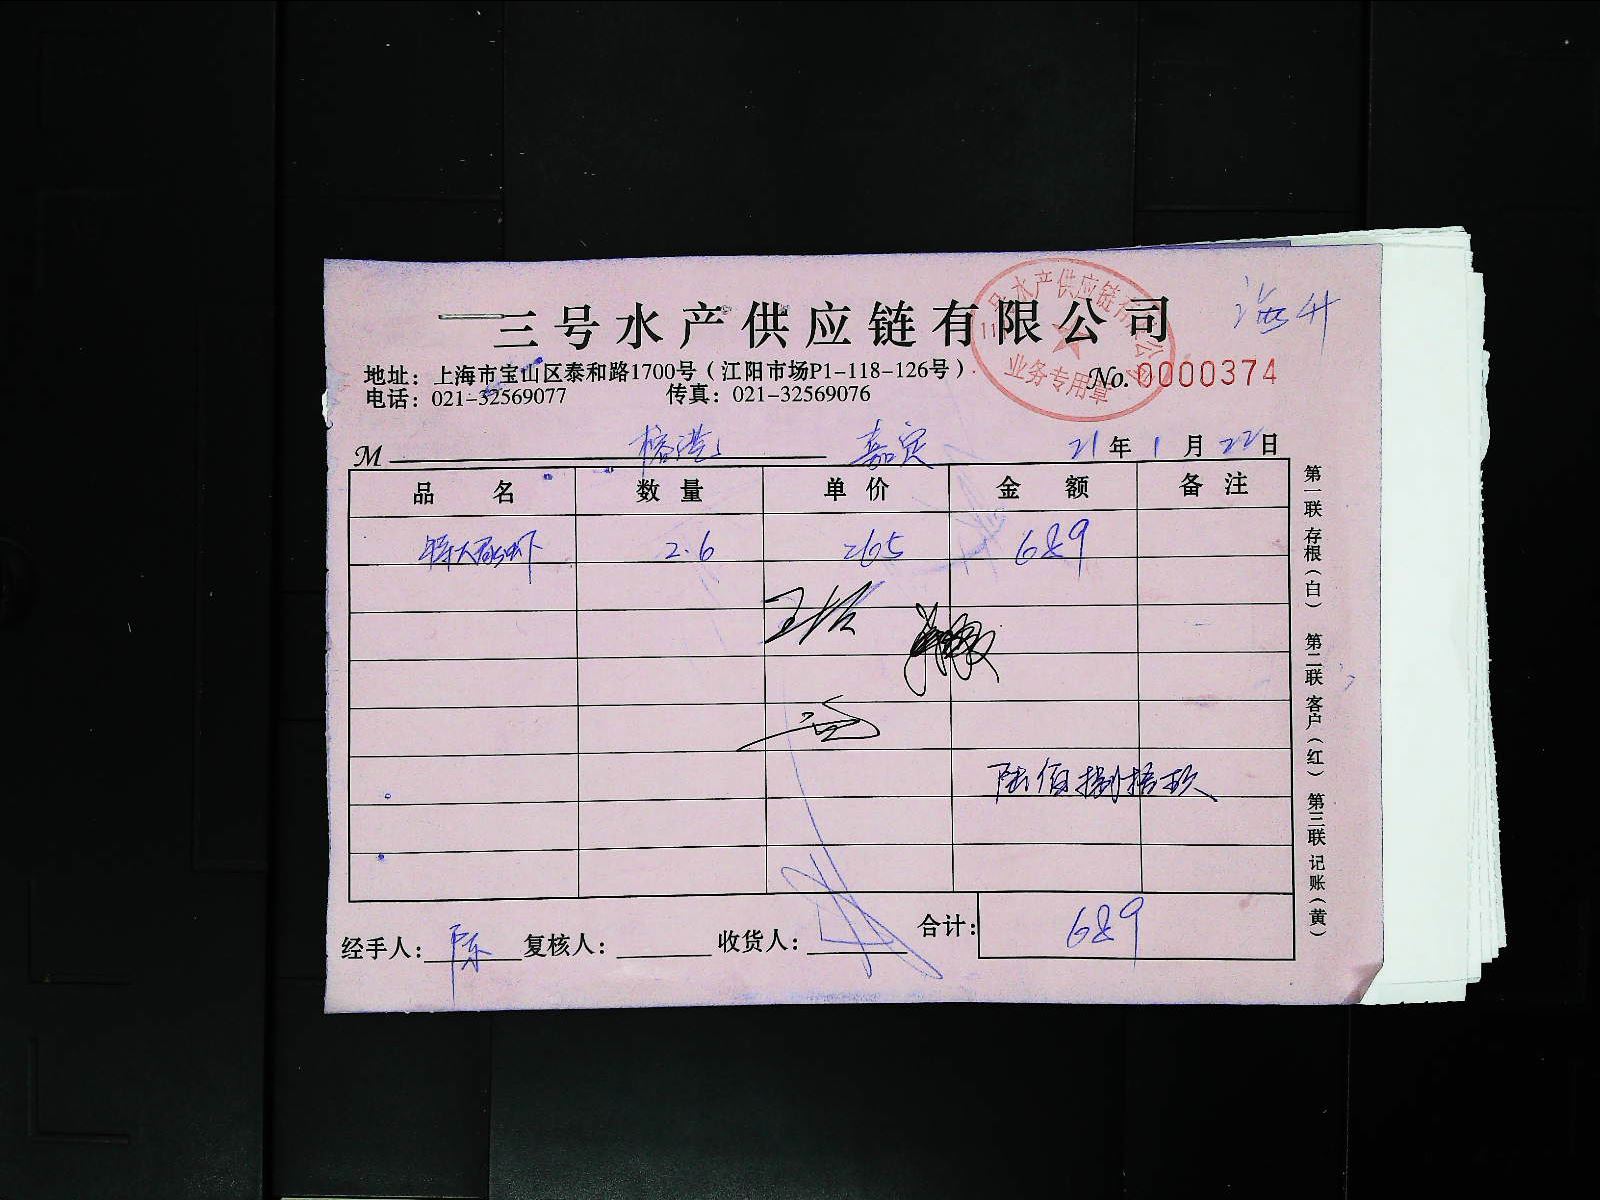 三号水产供应链有限公司
海升
地址：上海市宝山区泰和路1700号（江阳市场P1-118-126号）
电话：021-32569077 传真：021-32569076
业务专用章
No. 0000374
M 榕港 嘉定 21年1月22日
品名 数量 单价 金额 备注
特大 虾 2.6 265 689
陆佰捌拾玖
经手人：陈 复核人： 收货人： 合计：689
第一联 存根（白） 第二联 客户（红） 第三联 记账（黄）